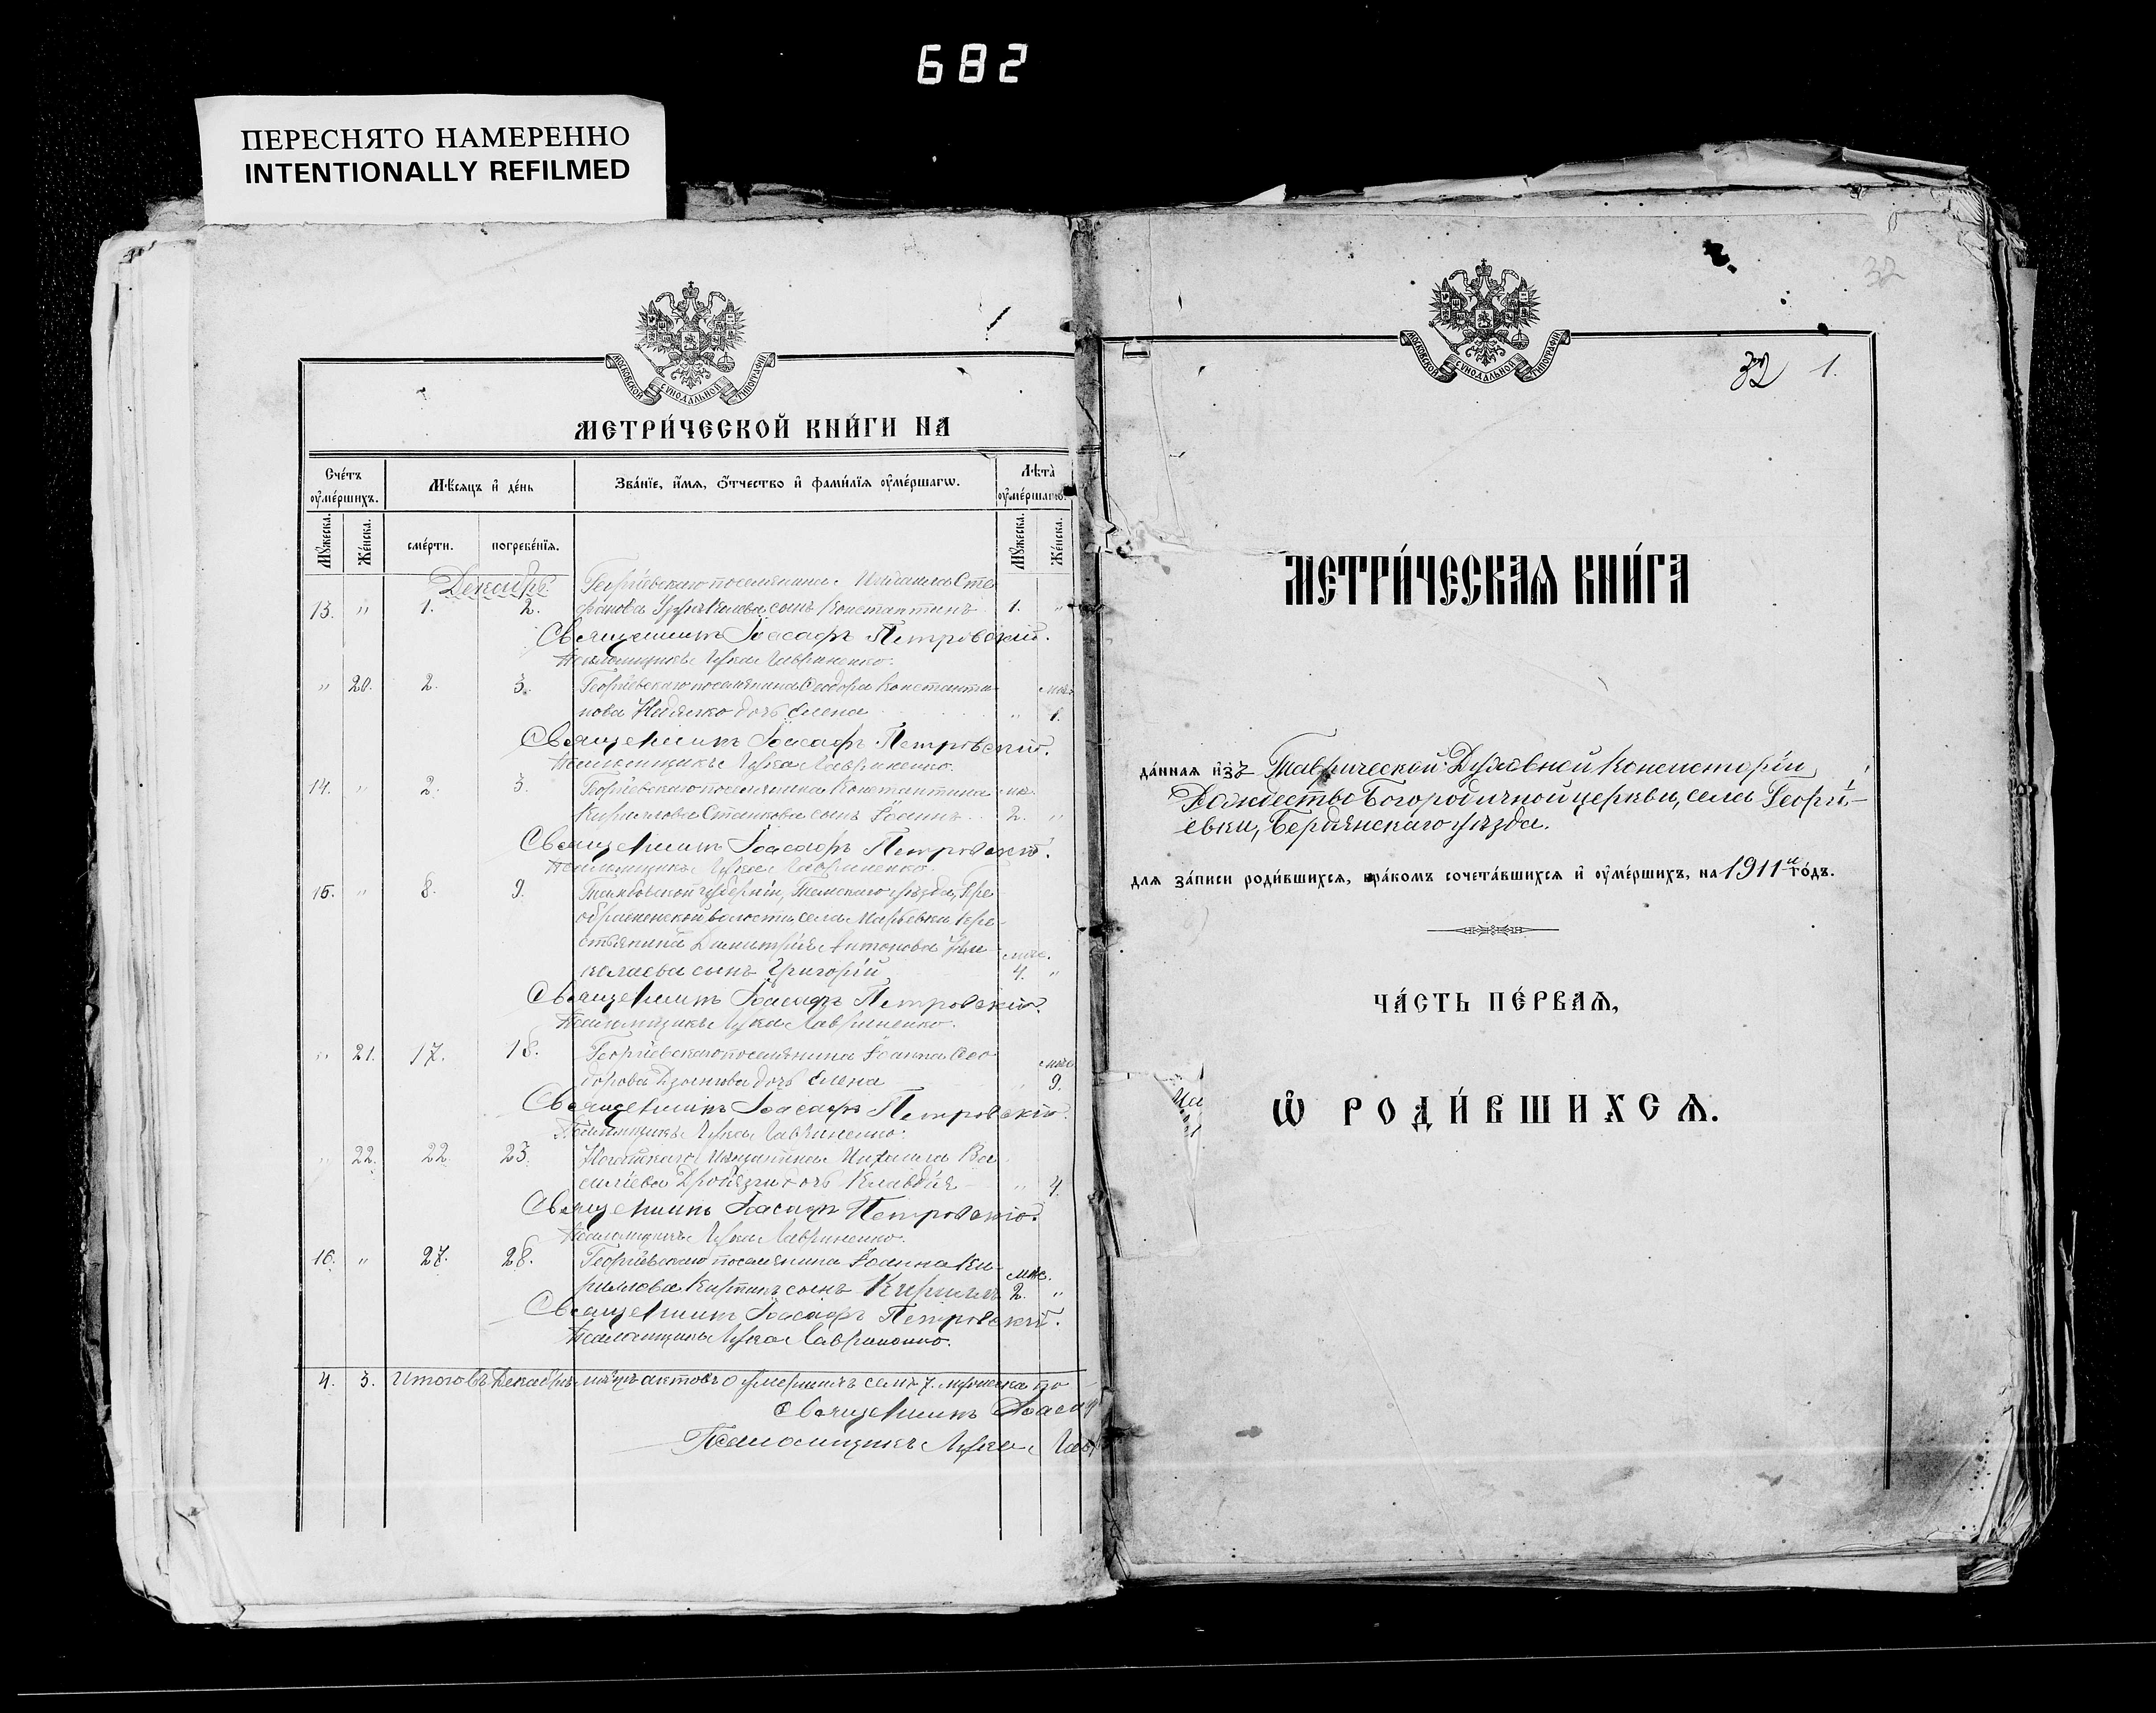 682
ПЕРЕСНЯТО НАМЕРЕННО
INTENTIONALLY REFILMED
МОСКОВСКОЙ СѴНОДАЛЬНОЙ ТИПОГРАФІИ
МЕТРИ́ЧЕСКОЙ КНИ́ГИ НА
Сче́тъ оуме́ршихъ.
Мѣ́сяцъ и де́нь
Зва́нїе, и́мя, о́тчество и фами́лїя оуме́ршагѡ.
Лѣта̀ оуме́ршагѡ.
Мꙋ́жеска.
Же́нска.
сме́рти.
погребе́нїя.
Мꙋ́жеска.
Же́нска.
Декабрь.
Георгіевскаго поселянина Сте-
13. " 1. 2. фанова сынъ Константинъ 1. "
Священникъ Іоасафъ Петровскій.
Псаломщикъ Лука Лавриненко.
" 20. 2. 3. Георгіевскаго поселянина Ѳеодора Константи- мѣс.
нова дочь Елена " 1.
Священникъ Іоасафъ Петровскій.
Псаломщикъ Лука Лавриненко.
14. " 2. 3. Георгіевскаго поселянина Константина мѣс.
Кириллова Станкова сынъ Іоаннъ 2. "
Священникъ Іоасафъ Петровскій.
Псаломщикъ Лука Лавриненко.
15. " 8. 9. губерніи, уѣзда, Пре-
ображенской волости села Марьевки кре-
стьянина Димитрія Антонова Ни- мѣс.
колаева сынъ Григорій 4. "
Священникъ Іоасафъ Петровскій.
Псаломщикъ Лука Лавриненко.
" 21. 17. 18. Георгіевскаго поселянина Іоанна Ѳео- мѣс.
дорова дочь Елена " 9.
Священникъ Іоасафъ Петровскій.
Псаломщикъ Лука Лавриненко.
" 22. 22. 23. Ногайскаго мѣщанина Михаила Ва-
силіева дочь Клавдія " 4
Священникъ Іоасафъ Петровскій.
Псаломщикъ Лука Лавриненко.
16. " 27. 28. Георгіевскаго поселянина Іоанна Ки- мѣс.
риллова сынъ Кириллъ 2. "
Священникъ Іоасафъ Петровскій.
Псаломщикъ Лука Лавриненко.
4. 3. Итого въ Декабрѣ мѣсяцѣ актовъ о умершихъ семь 7. мужеска по
Священникъ Іоаса
Псаломщикъ Лука Лав
32
МОСКОВСКОЙ СѴНОДАЛЬНОЙ ТИПОГРАФІИ
32 1.
МЕТРИ́ЧЕСКАѦ КНИ́ГА
да́нная и҆зъ Таврической Духовной Консисторіи,
Рождество-Богородичной церкви, села Георгі-
евки, Бердянскаго уѣзда.
для за́писи роди́вшихся, бра́комъ сочета́вшихся и оуме́ршихъ, на 1911й го́дъ.
ЧА́СТЬ ПЕ́РВАѦ,
Ѽ РОДИ́ВШИХСѦ.